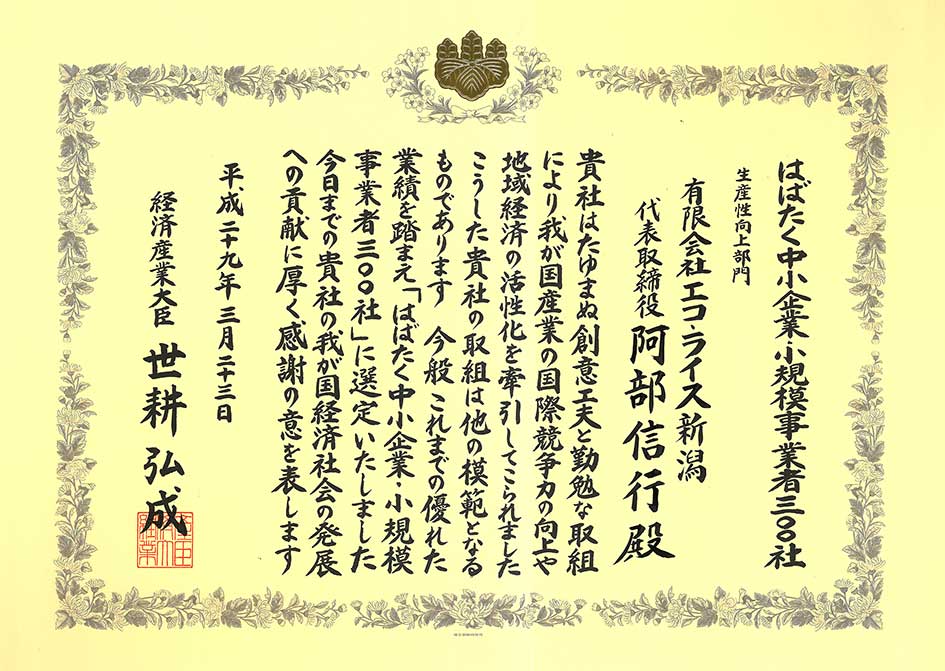 はばたく中小企業・小規模事業者三〇〇社
生産性向上部門
有限会社エコ・ライス新潟
代表取締役 阿部信行殿
貴社はたゆまぬ創意工夫と勤勉な取組
により我が国産業の国際競争力の向上や
地域経済の活性化を牽引してこられました
こうした貴社の取組は他の模範となる
ものであります 今般 これまでの優れた
業績を踏まえ「はばたく中小企業・小規模
事業者三〇〇社」に選定いたしました
今日までの貴社の我が国経済社会の発展
への貢献に厚く感謝の意を表します
平成二十九年三月二十三日
経済産業大臣 世耕弘成